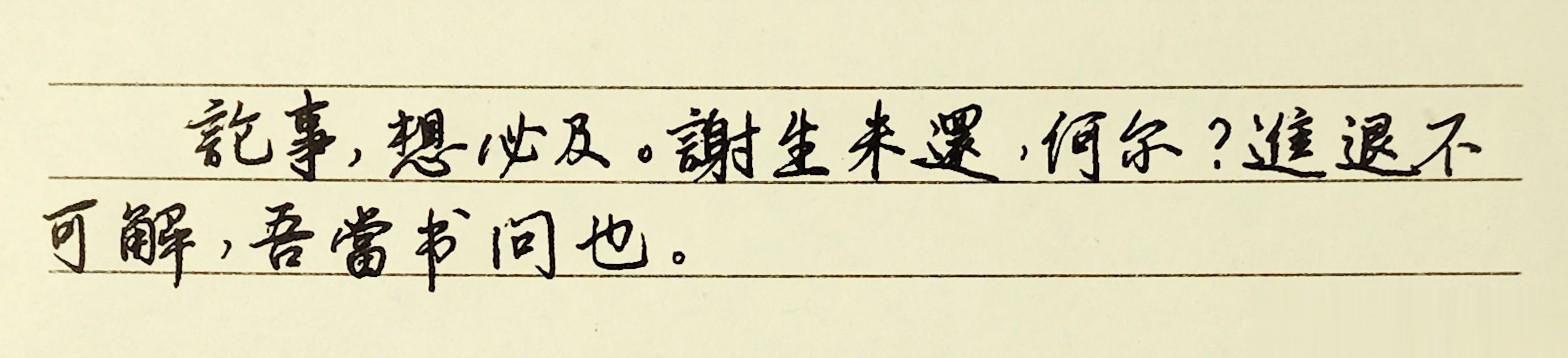 記事,想必及。謝生未還,何尔?進退不
可解,吾當书问也。